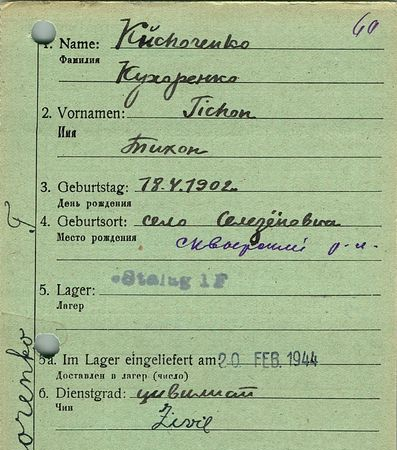 60
1. Name: Kücharenko
Фамилия
Кухаренко
2. Vornamen: Tichon
Имя
Тихон
3. Geburtstag: 18.4.1902.
День рождения
4. Geburtsort: село Селезёновка
Место рождения сквырский р-н.
5. Lager: Stalag 1 F
Лагер
5a. Im Lager eingeliefert am: 20 FEB. 1944
Доставлен в лагер (число)
6. Dienstgrad: цивилист
Чин
Zivil